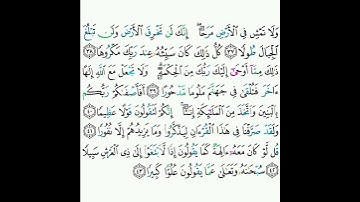 وَلَا تَمْشِ فِي الْأَرْضِ مَرَحًا ۖ إِنَّكَ لَن تَخْرِقَ الْأَرْضَ وَلَن تَبْلُغَ
الْجِبَالَ طُولًا ٣٧ كُلُّ ذَٰلِكَ كَانَ سَيِّئُهُ عِندَ رَبِّكَ مَكْرُوهًا ٣٨
ذَٰلِكَ مِمَّا أَوْحَىٰ إِلَيْكَ رَبُّكَ مِنَ الْحِكْمَةِ ۗ وَلَا تَجْعَلْ مَعَ اللَّهِ إِلَٰهًا
آخَرَ فَتُلْقَىٰ فِي جَهَنَّمَ مَلُومًا مَّدْحُورًا ٣٩ أَفَأَصْفَاكُمْ رَبُّكُم
بِالْبَنِينَ وَاتَّخَذَ مِنَ الْمَلَائِكَةِ إِنَاثًا ۚ إِنَّكُمْ لَتَقُولُونَ قَوْلًا عَظِيمًا ٤٠
وَلَقَدْ صَرَّفْنَا فِي هَٰذَا الْقُرْآنِ لِيَذَّكَّرُوا وَمَا يَزِيدُهُمْ إِلَّا نُفُورًا ٤١
قُل لَّوْ كَانَ مَعَهُ آلِهَةٌ كَمَا يَقُولُونَ إِذًا لَّابْتَغَوْا إِلَىٰ ذِي الْعَرْشِ سَبِيلًا
٤٢ سُبْحَانَهُ وَتَعَالَىٰ عَمَّا يَقُولُونَ عُلُوًّا كَبِيرًا ٤٣